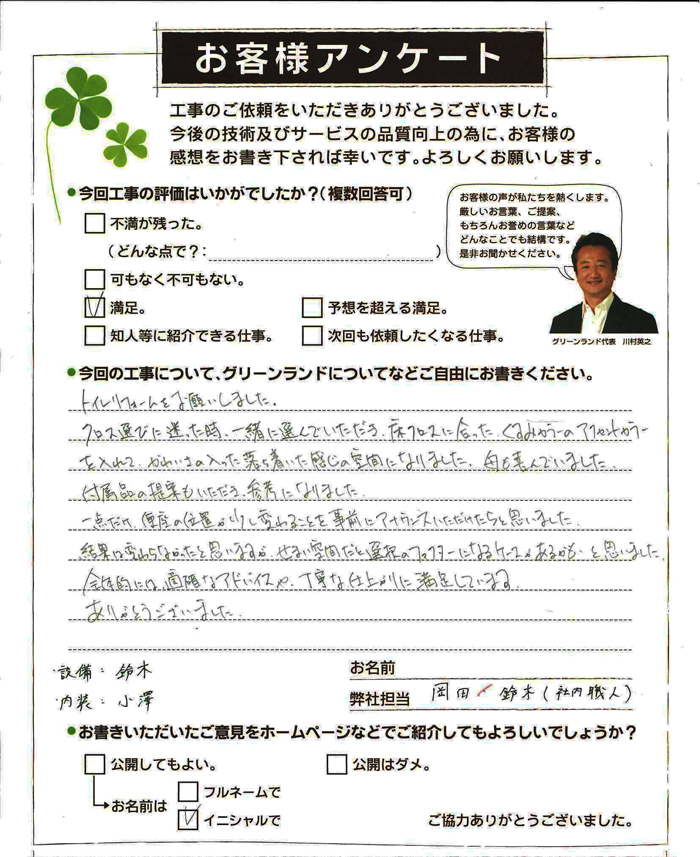 お客様アンケート
工事のご依頼をいただきありがとうございました。
今後の技術及びサービスの品質向上の為に、お客様の
感想をお書き下されば幸いです。よろしくお願いします。
●今回工事の評価はいかがでしたか?(複数回答可)
不満が残った。
(どんな点で?: )
可もなく不可もない。
満足。
予想を超える満足。
知人等に紹介できる仕事。
次回も依頼したくなる仕事。
お客様の声が私たちを熱くします。
厳しいお言葉、ご提案、
もちろんお誉めの言葉など
どんなことでも結構です。
是非お聞かせください。
グリーンランド代表 川村英之
●今回の工事について、グリーンランドについてなどご自由にお書きください。
トイレリフォームをお願いしました。
クロス選びに迷った時、一緒に選んでいただき、床クロスに合った くるみカラーのアクセントカラー
を入れて、かわいさの入った落ち着いた感じの空間になりました。母も喜んでいました。
付属品の提案もいただき、参考になりました。
一点だけ、便座の位置が少し変わることを事前にアナウンスいただけたらと思いました。
結果は変わらなかったと思いますが、せまい空間だと選択のファクターになるケースがあるかも…と思いました。
全体的には、適確なアドバイスや、丁寧な仕上がりに満足しています。
ありがとうございました。
・設備：鈴木
・内装：小澤
お名前
弊社担当 岡田 鈴木(社内職人)
●お書きいただいたご意見をホームページなどでご紹介してもよろしいでしょうか?
公開してもよい。
公開はダメ。
お名前は
フルネームで
イニシャルで
ご協力ありがとうございました。